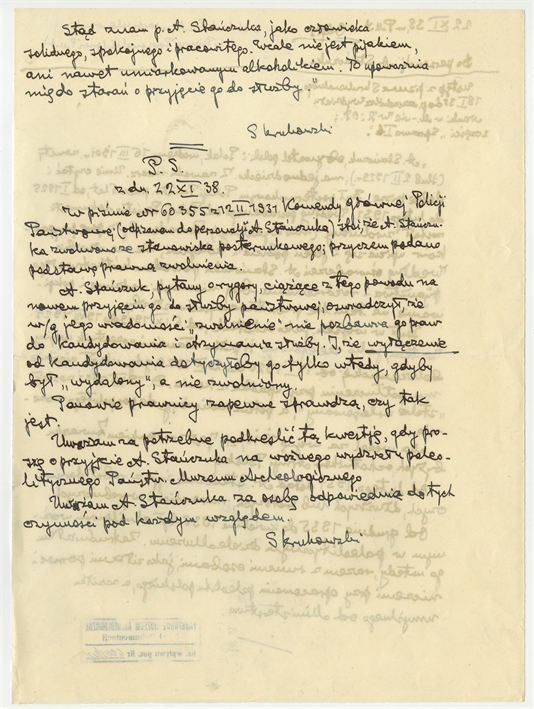 Stąd znam p. A. Stańczuka, jako człowieka
solidnego, spokojnego i pracowitego. Wcale nie jest pijakiem,
ani nawet umiarkowanym alkoholikiem. To upoważnia
mię do starań o przyjęcie go do służby."
S krukowski
P. S.
z dn. 22 XI 38.
W piśmie nr 60355 z 12 II 1931 Komendy głównej Policji
Państwowej (odpis mam do personalji A. Stańczuka) stoi, że A. Stańczu-
ka zwolniono ze stanowiska posterunkowego; przyczem podano
podstawę prawną zwolnienia.
A. Stańczuk, pytany o rygory, ciążące z tego powodu na
nowem przyjęciem go do służby państwowej, oświadczył, że
w/g jego wiadomości „zwolnienie" nie pozbawia go praw
do kandydowania i otrzymania służby. I, że wyłączenie
od kandydowania dotyczyłoby go tylko wtedy, gdyby
był „wydalony", a nie zwolniony.
Panowie prawnicy zapewne sprawdzą, czy tak
jest.
Uważam za potrzebne podkreślić tą kwestję, gdy pro-
szę o przyjęcie A. Stańczuka na woźnego wydziału paleo-
litycznego Państw. Muzeum Archeologicznego
Uważam A. Stańczuka za osobę odpowiednią do tych
czynności pod każdym względem.
S krukowski